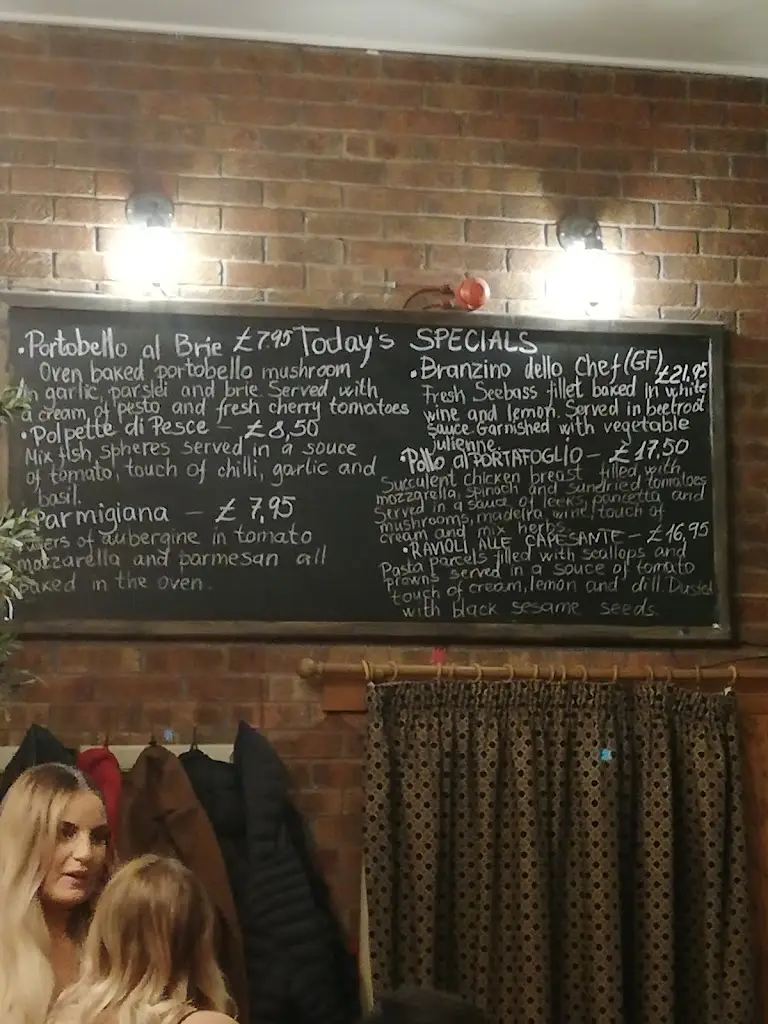 Today's SPECIALS
•Portobello al Brie £7.95
Oven baked portobello mushroom
in garlic, parslei and brie. Served with
a cream of pesto and fresh cherry tomatoes
•Polpette di Pesce - £8,50
Mix fish spheres served in a souce
of tomato, touch of chilli, garlic and
basil.
Parmigiana - £7,95
of aubergine in tomato
mozzarella and parmesan all
baked in the oven.
•Branzino dello Chef (GF) £21,95
Fresh Seebass fillet baked in white
wine and lemon. Served in beetroot
sauce. Garnished with vegetable
julienne.
•Pollo al PORTAFOGLIO - £17.50
Succulent chicken breast filled with
mozzarella, spinach and sundried tomatoes
Served in a sauce of leeks, pancetta and
mushrooms, madeira wine, touch of
cream and mix herbs.
•RAVIOLI ALLE CAPESANTE - £16,95
Pasta parcels filled with scallops and
prawns served in a souce of tomato
touch of cream, lemon and dill. Dusted
with black sesame seeds.